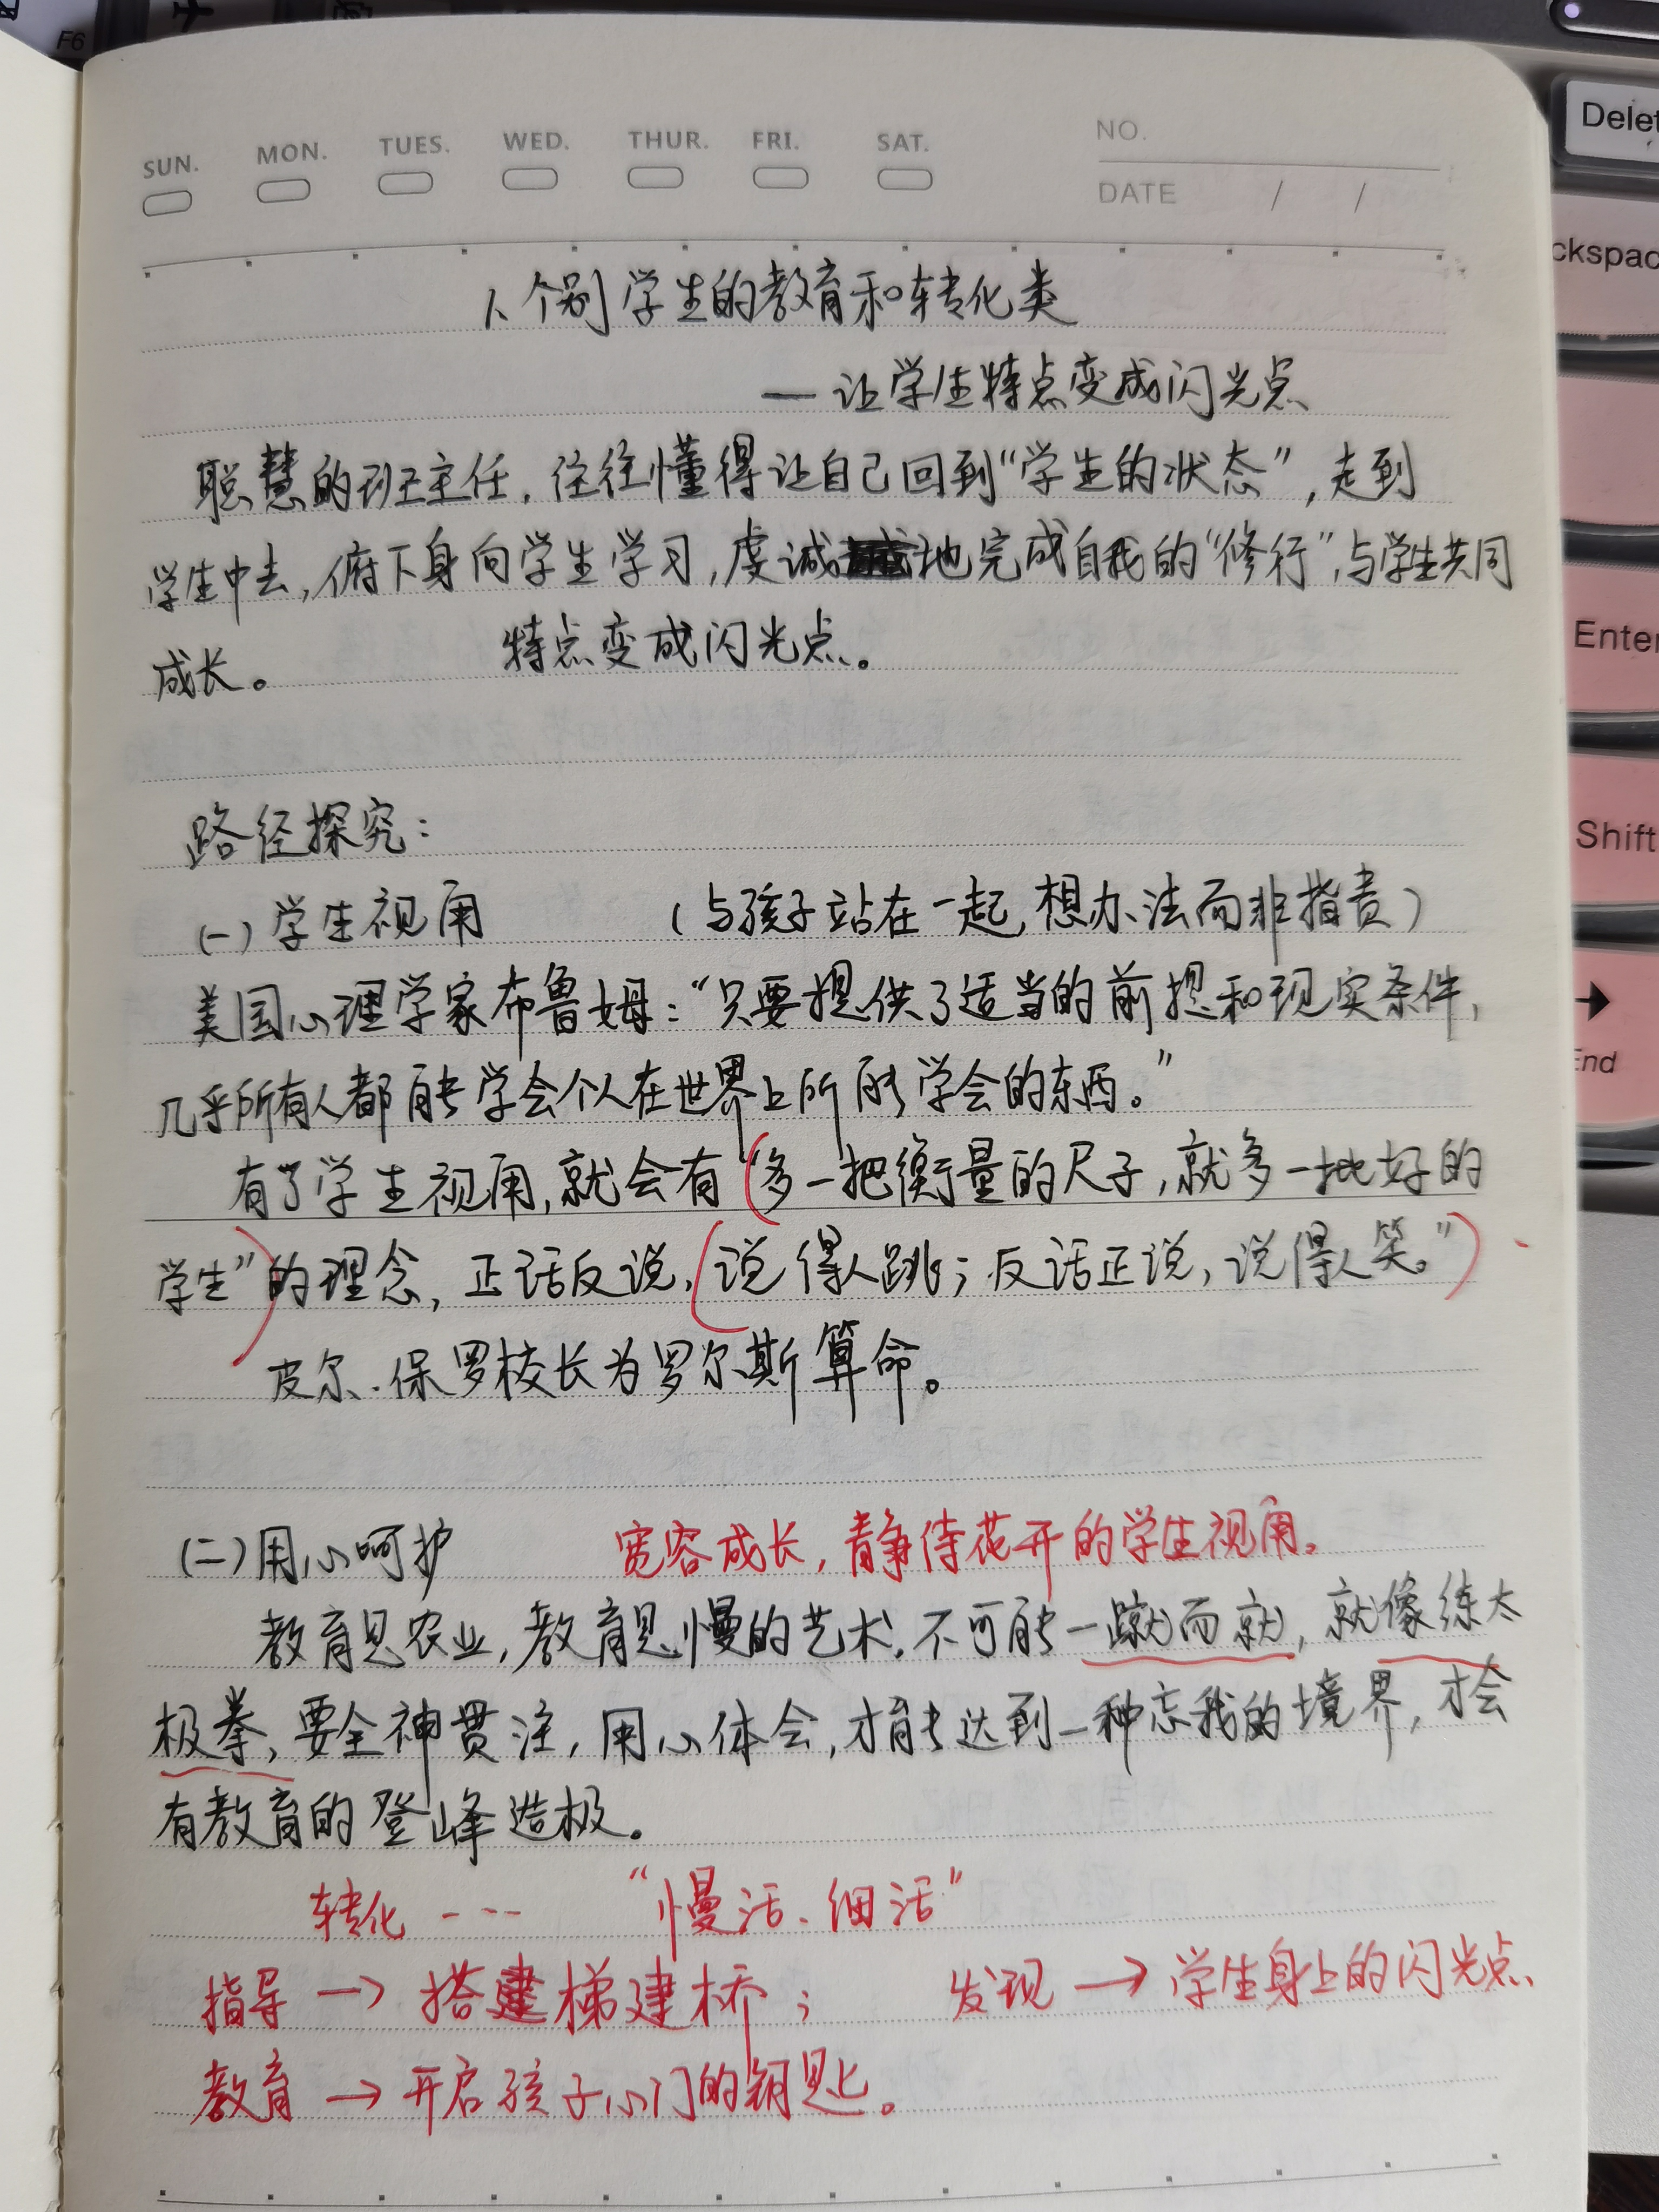 F6
SUN. MON. TUES. WED. THUR. FRI. SAT.
NO.
DATE / /
1、个别学生的教育和转化类
— 让学生特点变成闪光点
聪慧的班主任，往往懂得让自己回到“学生的状态”，走到
学生中去，俯下身向学生学习，虔诚地完成自我的“修行”，与学生共同
成长。 特点变成闪光点。
路径探究：
(一) 学生视角 （与孩子站在一起，想办法而非指责）
美国心理学家布鲁姆：“只要提供了适当的前提和现实条件，
几乎所有人都能学会个人在世界上所能学会的东西。”
有了学生视角，就会有“多一把衡量的尺子，就多一批好的
学生”的理念，正话反说，（说得人跳；反话正说，说得人笑。”）
皮尔.保罗校长为罗尔斯算命。
(二) 用心呵护 宽容成长，静待花开的学生视角。
教育是农业，教育是慢的艺术，不可能一蹴而就，就像练太
极拳，要全神贯注，用心体会，才能达到一种忘我的境界，才会
有教育的登峰造极。
转化 --- “慢活、细活”
指导 → 搭建梯建桥； 发现 → 学生身上的闪光点、
教育 → 开启孩子心门的钥匙。
Delet
ckspac
Enter
Shift
End